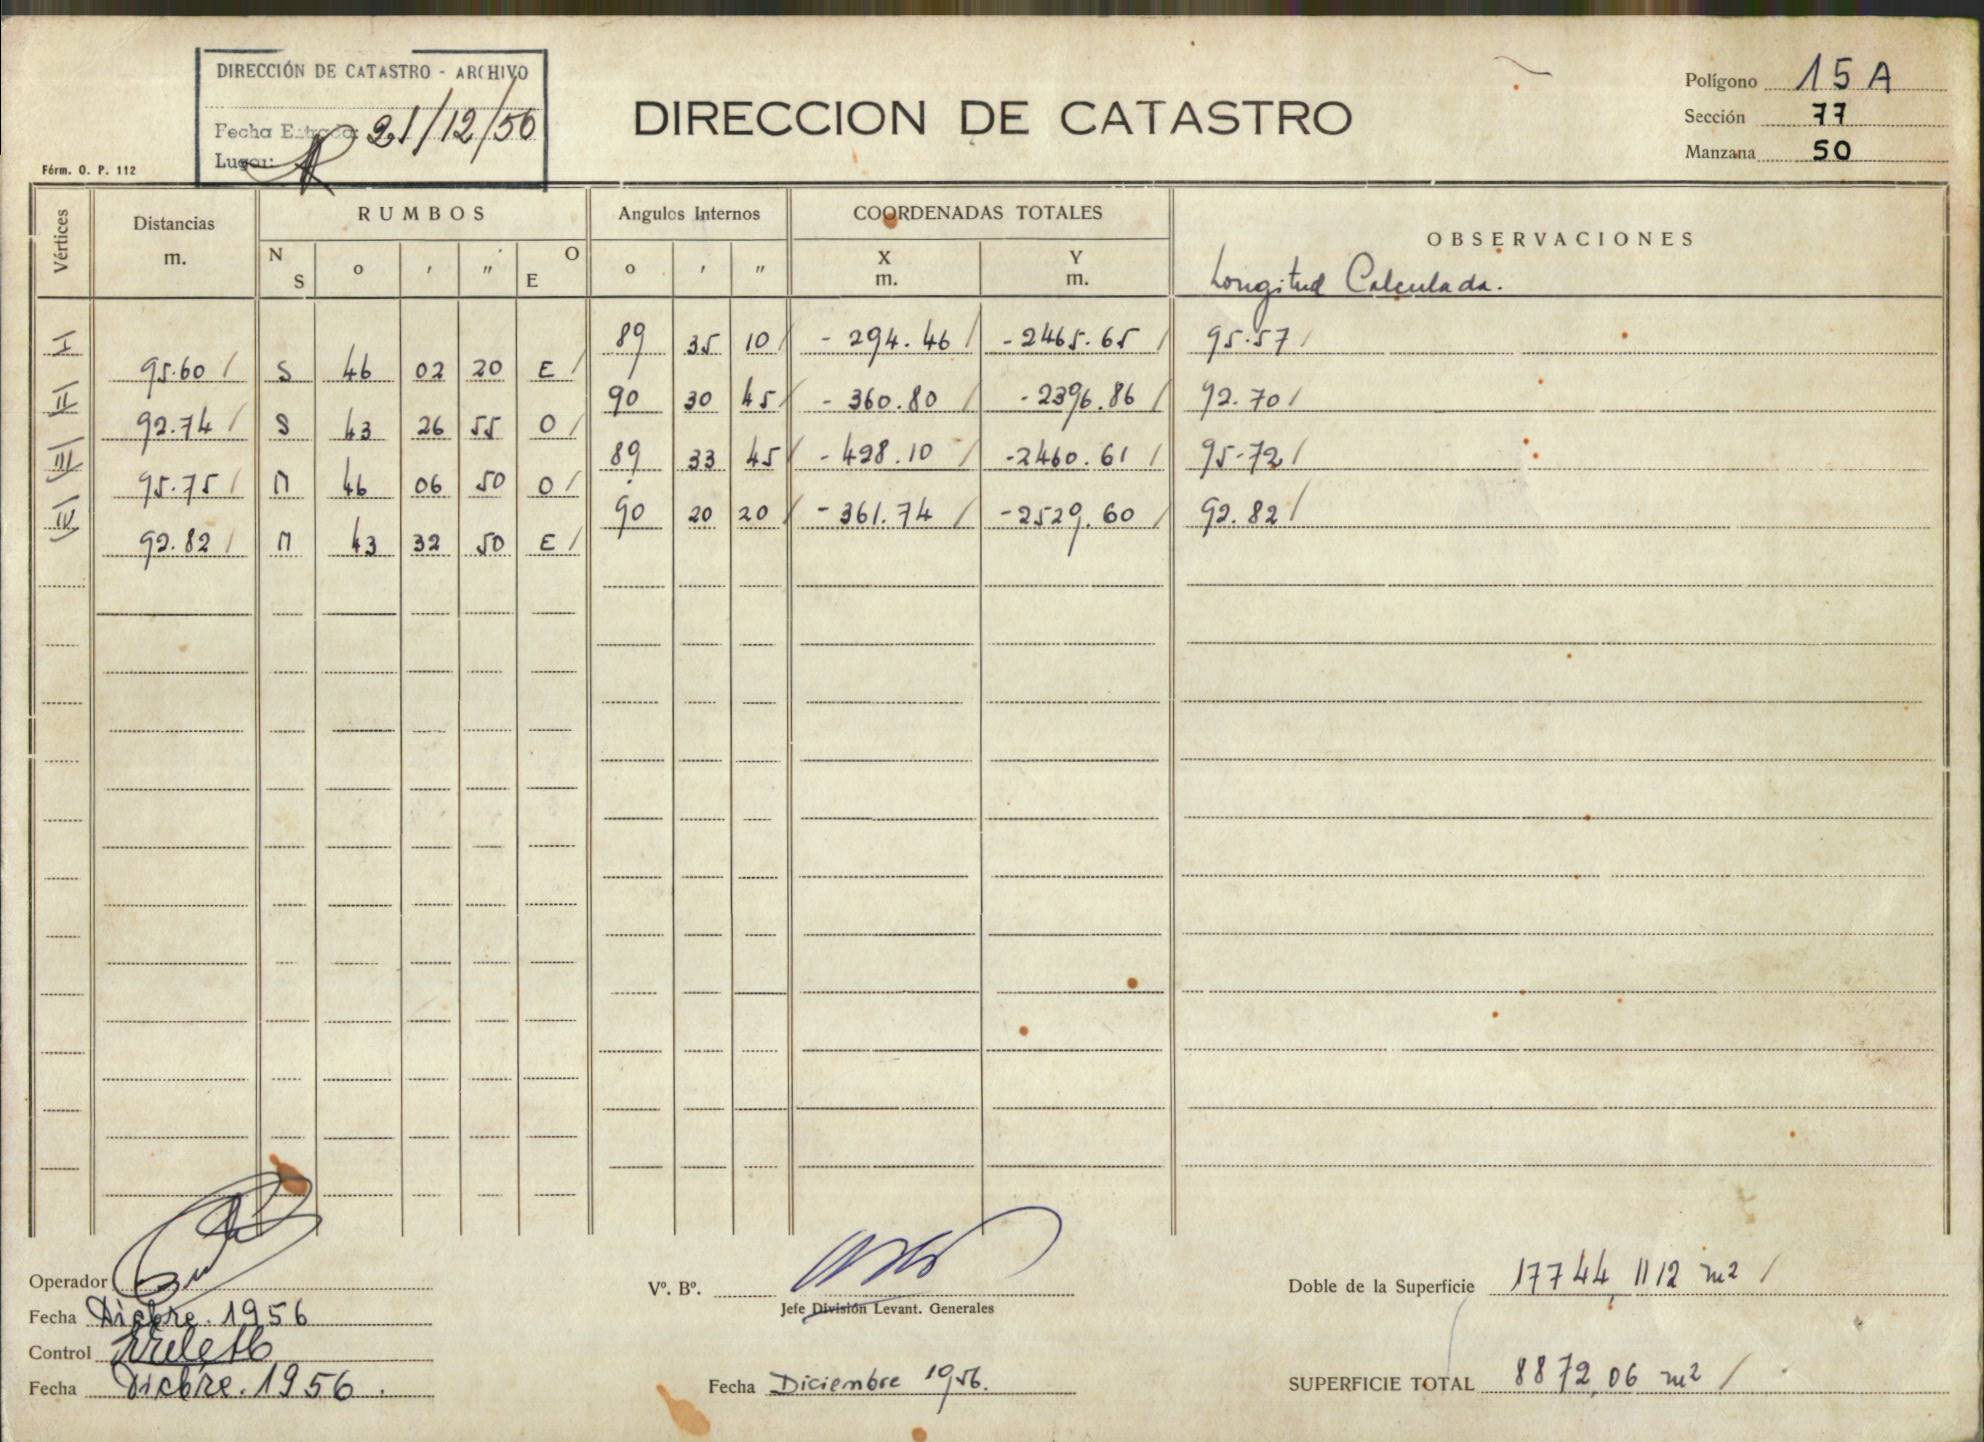 DIRECCIÓN DE CATASTRO - ARCHIVO
Fecha Entrada: 21/12/56
Lugar:
Fórm. O. P. 112
DIRECCION DE CATASTRO
Polígono 15 A
Sección 77
Manzana 50
Vértices Distancias m. RUMBOS Angulos Internos COORDENADAS TOTALES OBSERVACIONES
N S o ' " O E o ' " X m. Y m.
Longitud Calculada.
I 89 35 10 - 294.46 - 2465.65 95.57
95.60 S 46 02 20 E
II 90 30 45 - 360.80 - 2396.86 92.70
92.74 S 43 26 55 O
III 89 33 45 - 428.10 - 2460.61 95.72
95.75 N 46 06 50 O
IV 90 20 20 - 361.74 - 2529.60 92.82
92.82 N 43 32 50 E
Operador
Fecha Dicbre. 1956
Control
Fecha Dicbre. 1956.
Vº. Bº.
Jefe División Levant. Generales
Fecha Diciembre 1956.
Doble de la Superficie 17744,1112 m2
SUPERFICIE TOTAL 8872,06 m2